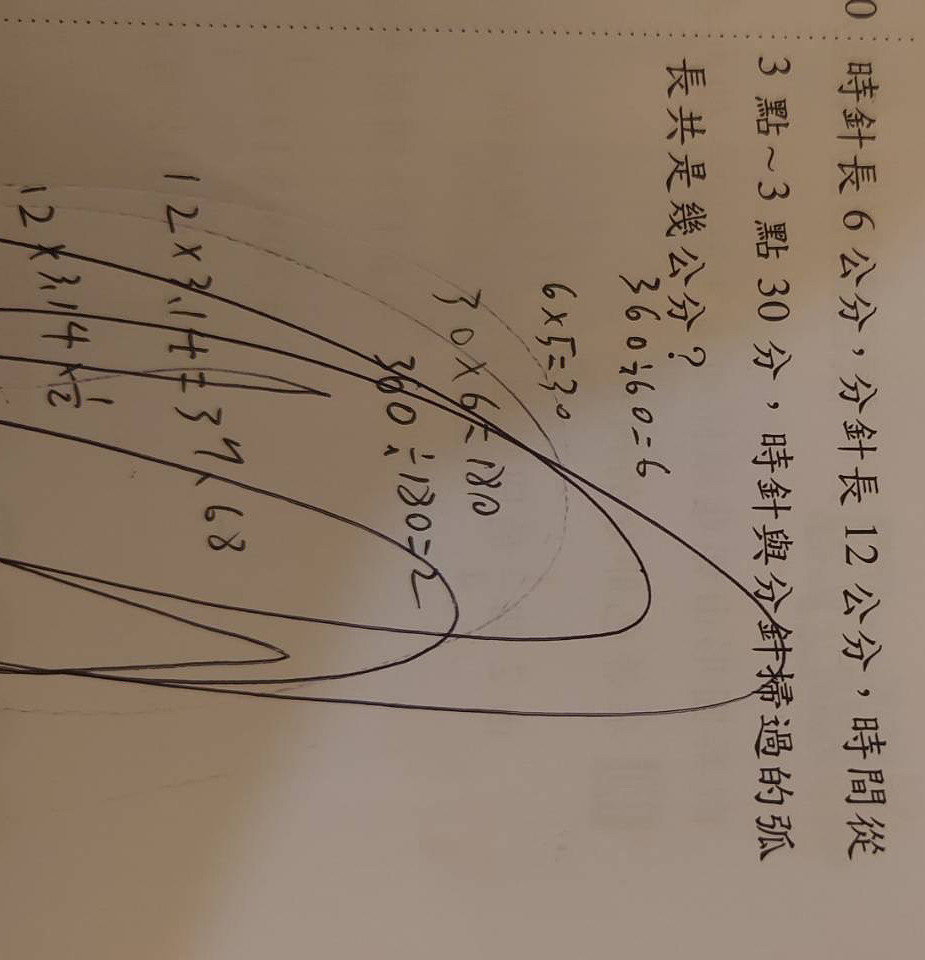 0
時針長 6 公分，分針長 12 公分，時間從
3 點～3 點 30 分，時針與分針掃過的弧
長共是幾公分？
360÷60=6
6×5=30
30×6=180
360÷180=2
12×3.14=37.68
12×3.14×1/2